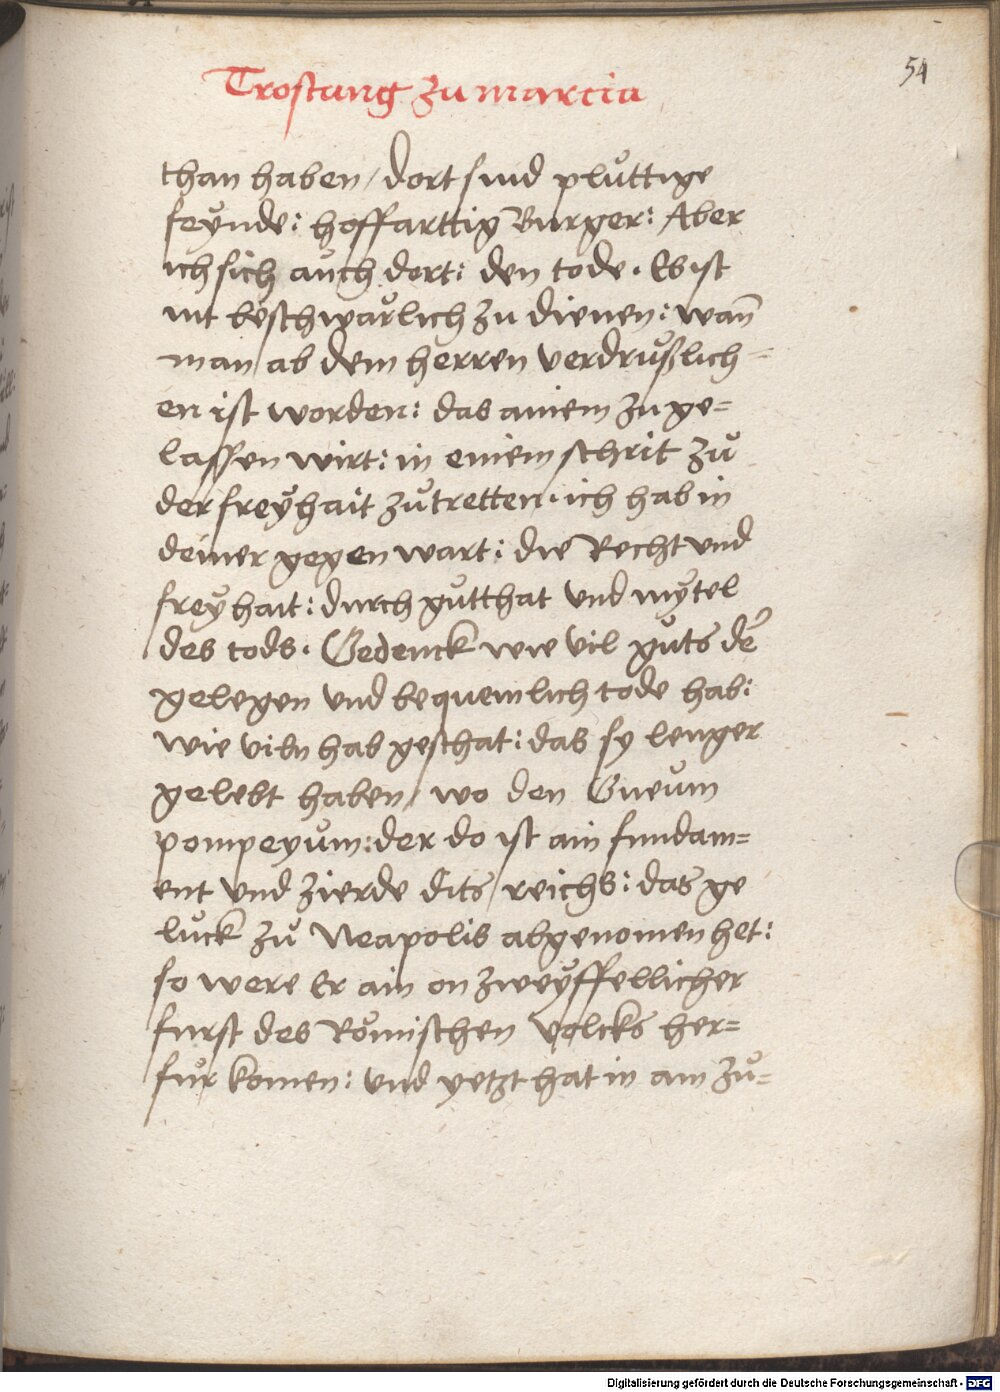 Trostung zu marcia
54
than haben / dort sind pluͤttige
feÿnde: hoffarttig Burger: Aber
ich sich auch dort: den tode. Es ist
nit beschwaͤrlich zu dienen: wan̄
man ab dem herren verdruͦßlich=
en ist worden: das ainem zu ge=
lassen wirt: in einem schrit zuͦ
der freÿhait zuͦtretten. ich hab in
deiner gegenwart: die Recht und
freÿhait: durch guͦtthat und mÿtel
des tods. Gedenck wie vil guͦts de͛
gelegen und bequemlich tode hab:
wie viln hab geschat: das sy lenger
gelebt haben / wo den Gneum
pompeyum: der do ist ain fundam=
ent und zierde dits reichs: das ge
luͤck zuͦ Neapolis abgenomen het:
so were Er ain on zweÿffellicher
furst des Roͤmischen volcks her=
fuͤr komen: und yetzt hat in ain zuͦ=
Digitalisierung gefördert durch die Deutsche Forschungsgemeinschaft - DFG